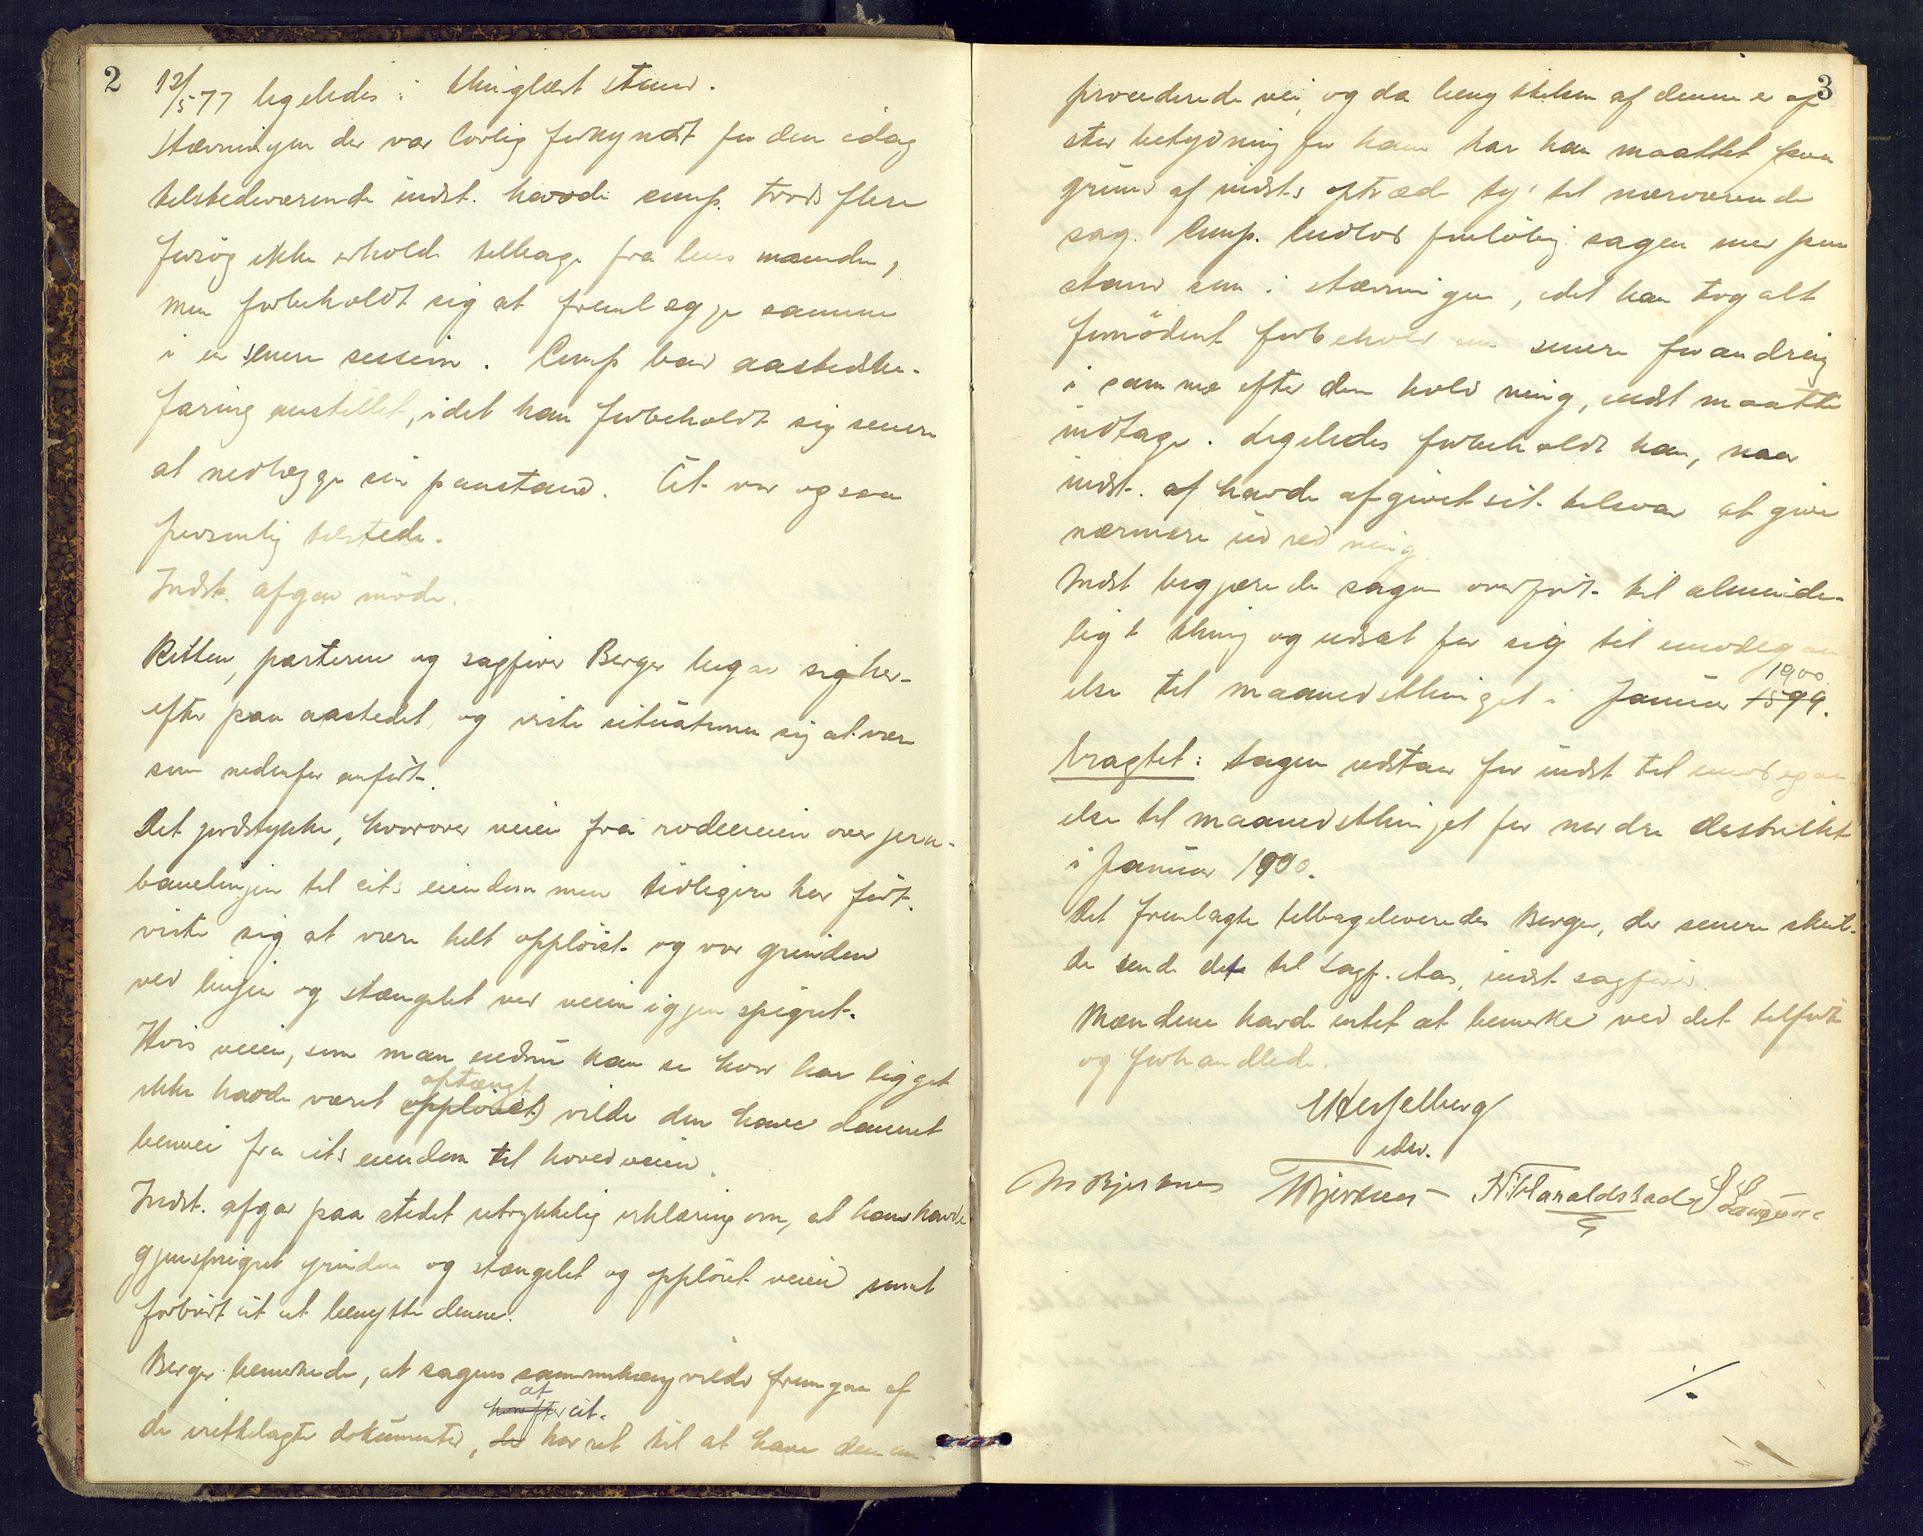 2
12/5 77 ligeledes i thinglæst stand.
Stævningen der var lovlig forkyndt for den idag
tilstedeværende indst. havde comp. trods flere
forsøg ikke erholdt tilbage fra lensmanden,
men forbeholdt sig at fremlægge samme
i en senere session. Comp bad aastedsbe-
faring anstillet, idet han forbeholdt sig senere
at nedlægge sin paastand. Cit. var ogsaa
personlig tilstede.
Indst. afgav møde.
Retten, parterne og sagfører Berger begav sig her-
efter paa aastedet, og viste situationen sig at være
som nedenfor anført.
Det jordstykke, hvorover veien fra rodeveien over jern-
banelinjen til cit.s eiendom men tidligere har ført.
viste sig at være helt oppløiet og var grinden
ved linjen og stængslet ved veien igjenspigret.
Hvis veien, som man endnu kan se hvor har ligget
aftængt
ikke havde været oppløiet, vilde den have dannet
benvei fra cit.s eiendom til hovedveien.
Indst. afgav paa stedet uttrykkelig erklæring om, at han havde
gjenspigret grinden og stængslet og oppløiet veien samt
forbudt cit at benytte denne.
Berger bemerkede, at sagens sammenhæng vilde fremgaa af
at
hvorefter cit.
de iretttelagte dokumenter, har ret til at have den om-
3
procederede vei, og da benyttelsen af denne er af
stor betydning for ham har han maattet paa
grund af indst.s optræden ty til nærværende
sag. Comp. indlod foreløbig sagen med paa
stand som i stævningen, idet han tog alt
fornødent forbehold om senere forandring
i samme efter den holdning, indst maatte
indtage. Ligeledes forbeholdt han, naar
indst. af havde afgivet sit tilsvar at give
nærmere udredning.
Indst begjærede sagen overført til alminde-
ligt thing og udsat for sig til imødegaa-
1900
else til maanedsthinget i Januar 1899.
Eragtet: Sagen udstaar for indst til imødegaa
else til maanedsthinget for nordre distrikt
i Januar 1900.
Det fremlagte tilbageleveredes Berger, der senere skul-
de sende det til sagf. Aas, indst. sagfører.
Mændene havde intet at bemerke ved det tilførte
og forhandlede.
Hesselberg
edsv.
Bjertnes T Bjertnes N. Haraldstad